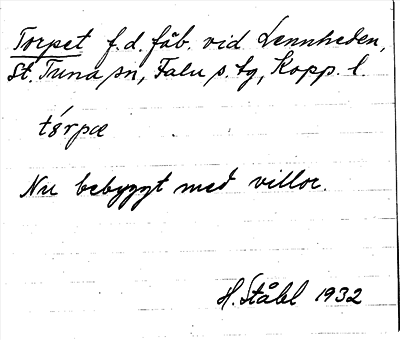 Torpet f.d. fäb. vid Lennheden,
St. Tuna sn, Falu s. tg, Kopp. l.
tórpæ
Nu bebyggt med villor.
H. Ståhl 1932